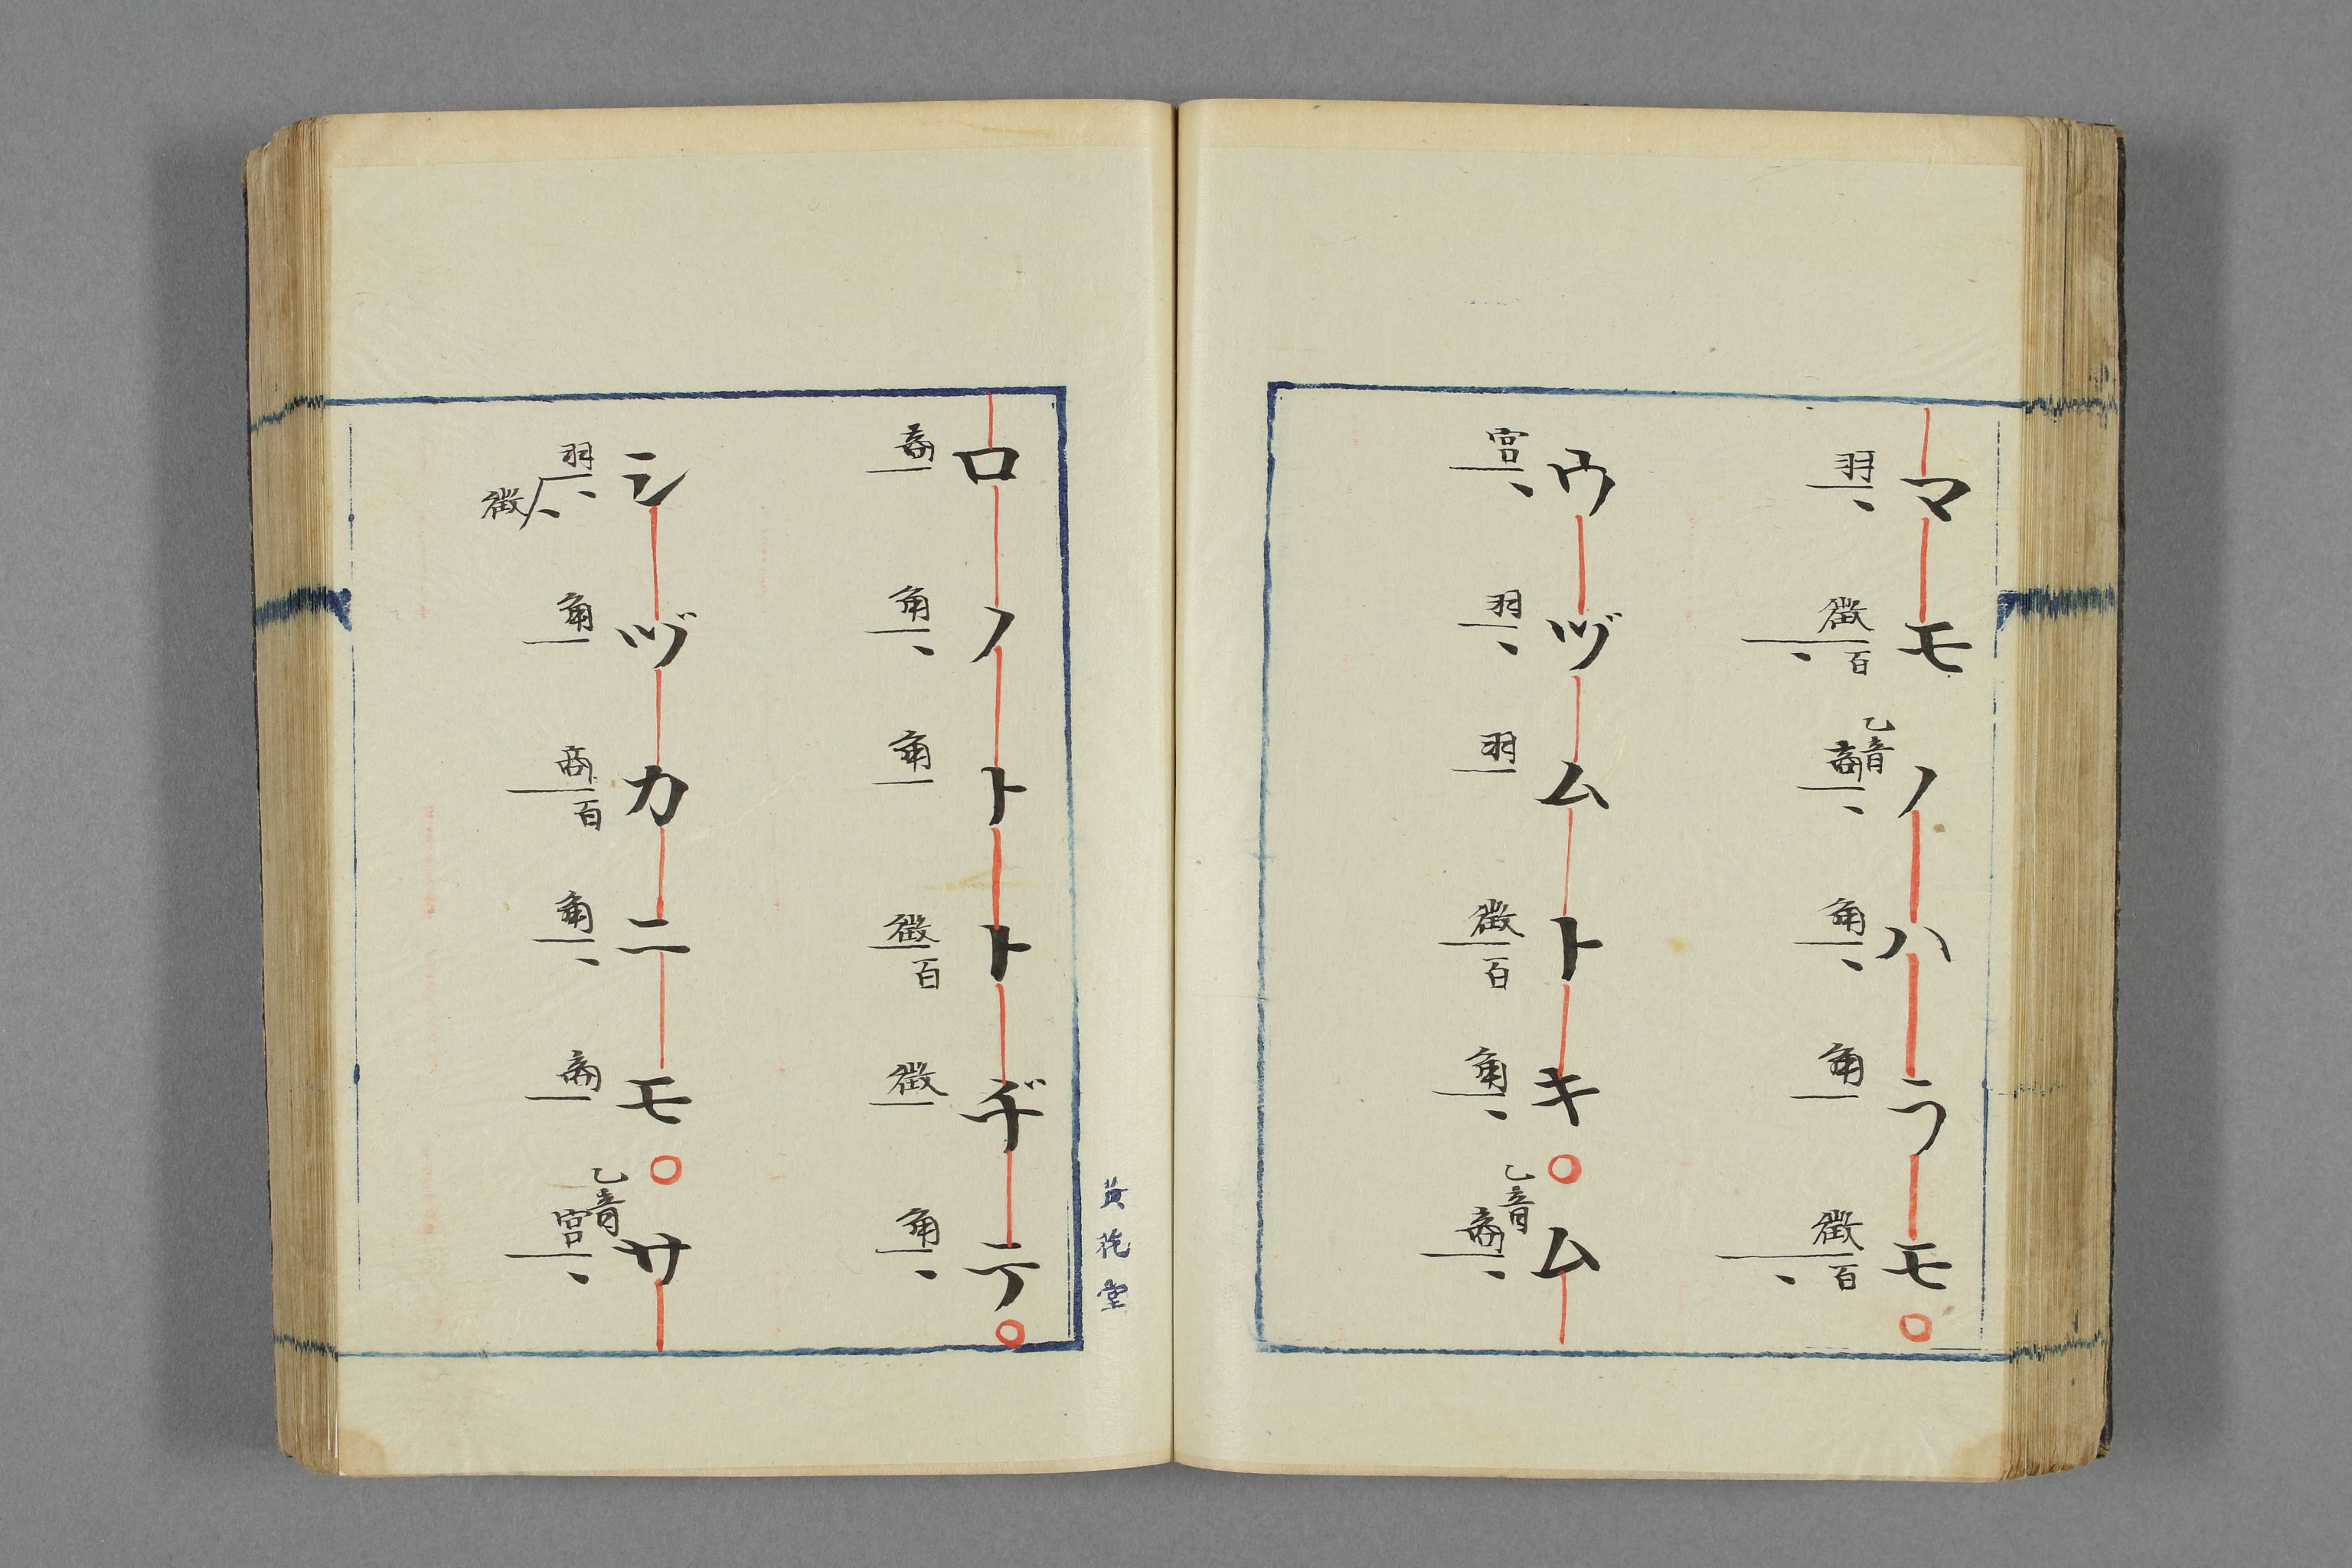 マモノハラモ○
羽 徴百 乙音商 角 角 徴百
ウヅムトキ○ム
宮 羽 羽 徴百 角 乙音商
黄花堂
ロノトトヂテ○
商 角 角 徴百 徴 角
シヅカニモ○サ
羽徴 角 商百 角 商 乙音宮